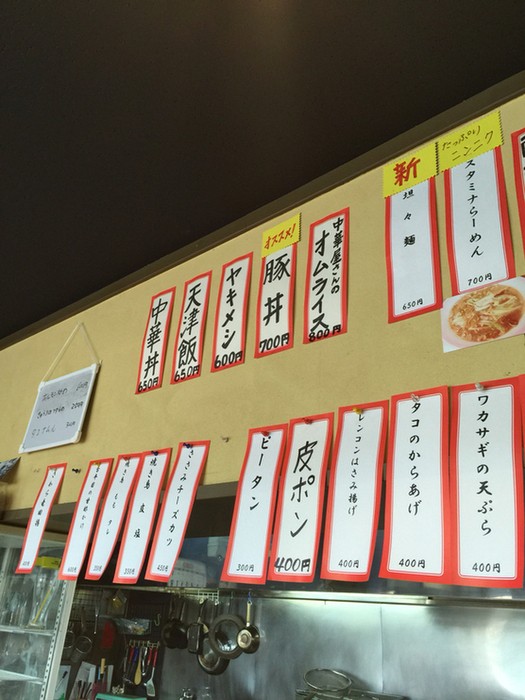 たっぷり
ニンニク
スタミナらーめん
700円
新
坦々麺
650円
中華屋さんの
オムライス
800円
オススメ!
豚丼
700円
ヤキメシ
600円
天津飯
650円
中華丼
650円
ワカサギの天ぷら
400円
タコのからあげ
400円
レンコンはさみ揚げ
400円
皮ポン
400円
ピータン
300円
ささみチーズカツ
400円
焼き鳥 皮 塩